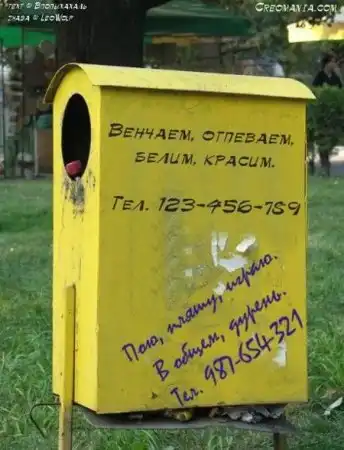 текст © Вполыхахаль
Creomania.com
сказа © LeoWolf
Венчаем, отпеваем,
белим, красим.
Тел. 123-456-789
Пою, пляшу, играю.
В общем, дурень.
Тел. 987-654-321